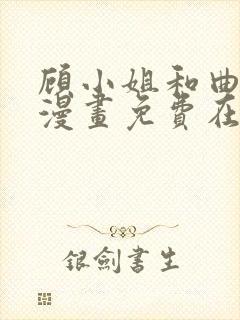 顾小姐和曲
漫畫免費在
银劍書生